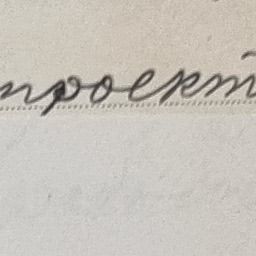 проект